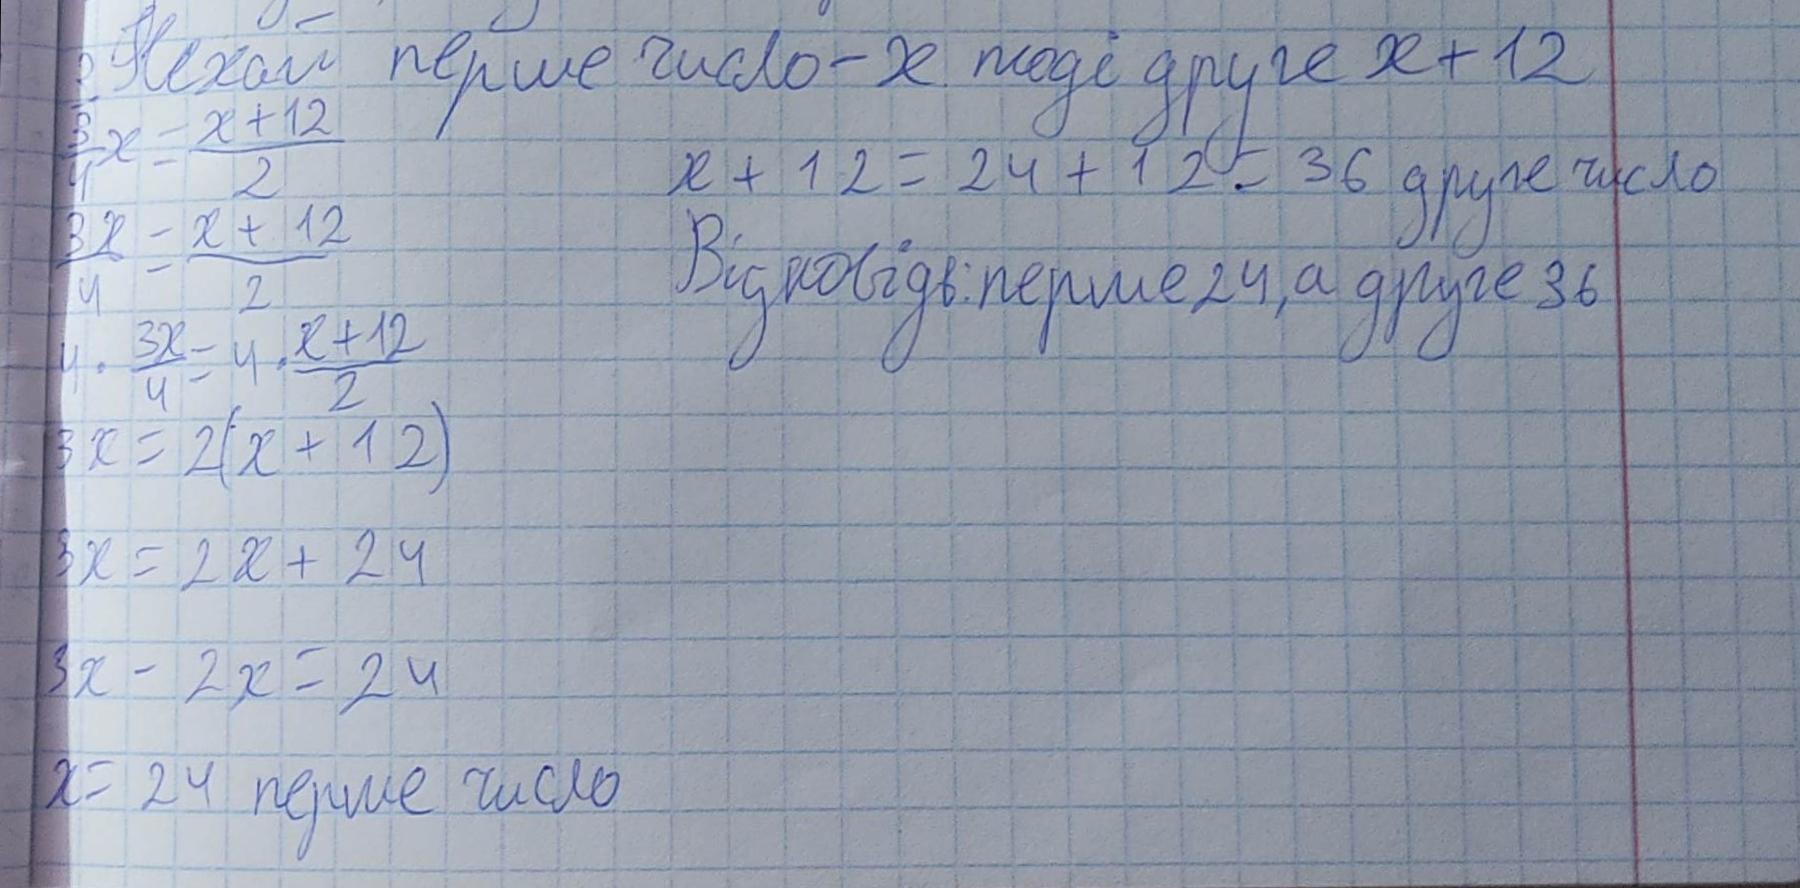 Нехай перше число - x тоді друге x + 12
3/4 x = (x + 12)/2
3x/4 = (x + 12)/2
4 · 3x/4 = 4 · (x + 12)/2
3x = 2(x + 12)
3x = 2x + 24
3x - 2x = 24
x = 24 перше число
x + 12 = 24 + 12 = 36 друге число
Відповідь: перше 24, а друге 36